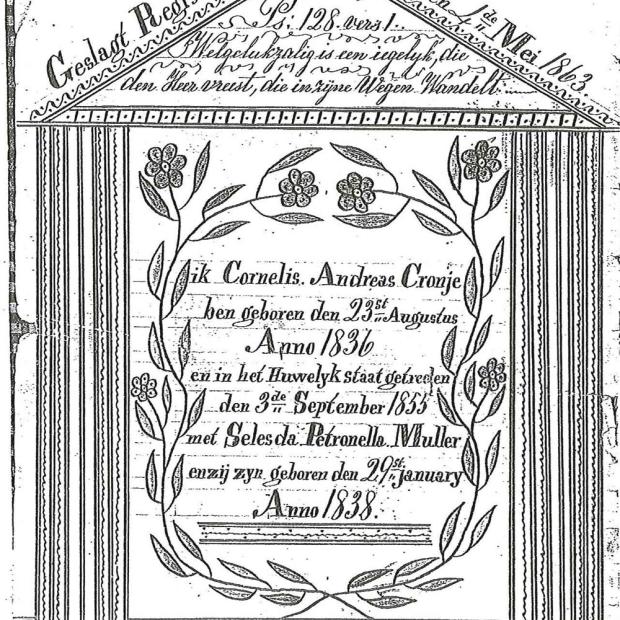 Geslagt Regis
1de Mei 1863
Ps: 128. vers 1.
Welgelukzalig is een iegelyk, die
den Heer vreest, die in zyne Wegen Wandelt.
ik Cornelis. Andreas Cronje
ben geboren den 23st Augustus
Anno 1836
en in het Huwelyk staat getreden
den 3de September 1855
met Selesda Petronella Muller
en zij zyn geboren den 29st january
Anno 1838.